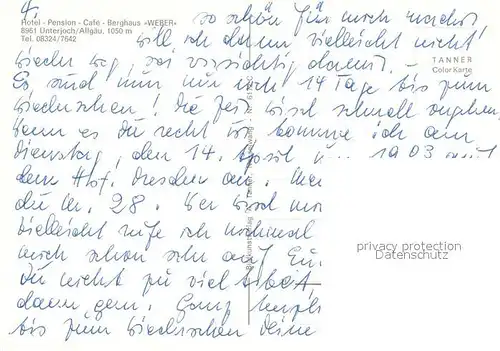 4.
Hotel - Pension - Café - Berghaus »WEBER«
8961 Unterjoch/Allgäu, 1050 m
Tel. 08324/7642
TANNER
Color Karte
so schön für mich machst
will ich dann vielleicht nicht
wieder weg, sei vorsichtig damit. –
Es sind nun nur noch 14 Tage bis zum
Wiedersehen! Die Zeit wird schnell vergehen.
Wenn es Dir recht ist komme ich am
Dienstag, den 14. April 19 03 mit
dem Dresden an.
28. Wer wird mir
Vielleicht rufe ich nochmal
mich schon sehr auf Eu.
Du nicht zu viel Arbeit
dann gern. Ganz herzli
bis zum Wiedersehen Deine
privacy protection
Datenschutz